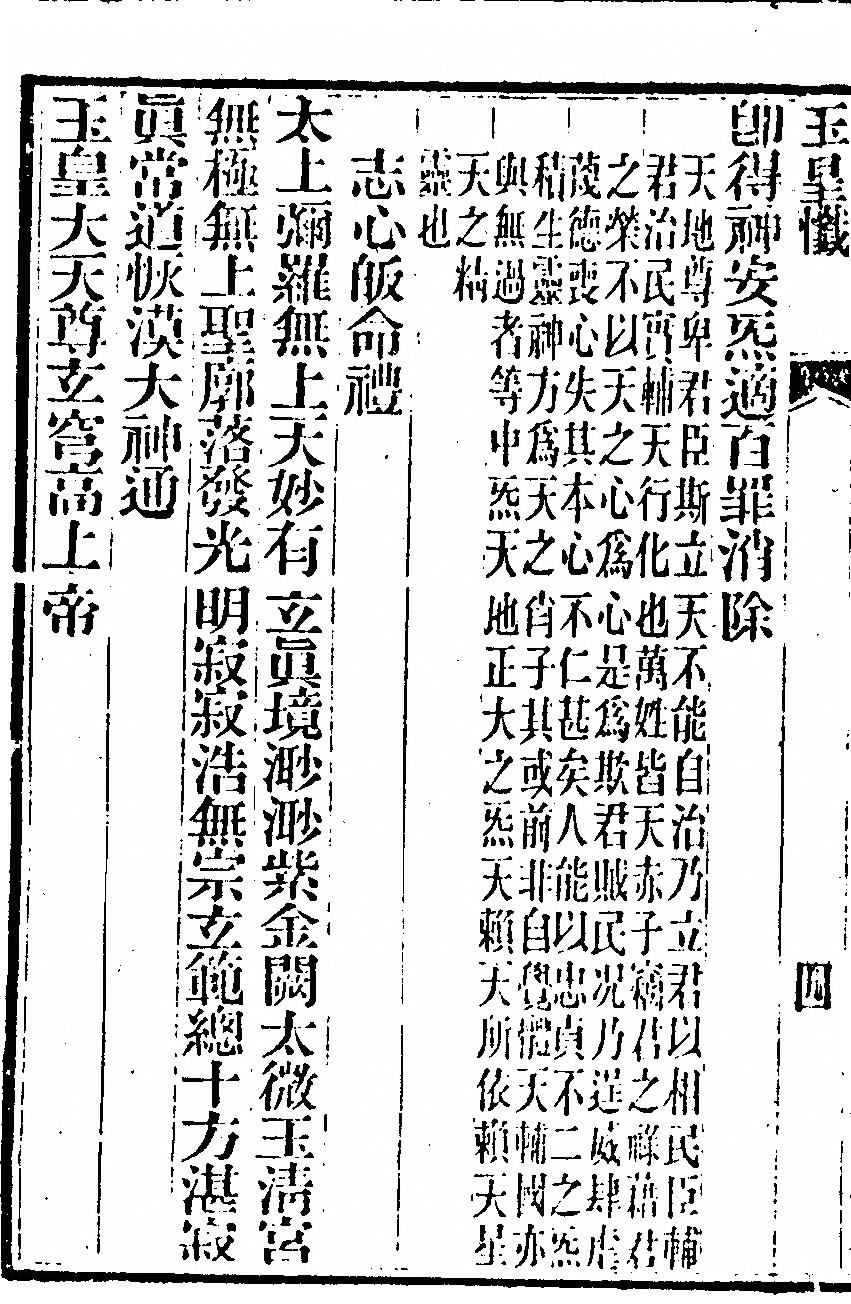 玉皇懺
卽得神安炁適百罪消除
天地尊卑君臣斯立天不能自治乃立君以相民臣輔
君治民實輔天行化也萬姓皆天赤子竊君之祿藉君
之榮不以天之心爲心是爲欺君賊民况乃逞威肆虐
蔑德喪心失其本心不仁甚矣人能以忠貞不二之炁
積生靈神方爲天之肖子其或前非自覺體天輔國亦
與無過者等中炁天地正大之炁天賴天所依賴天星
天之精
靈也
志心皈命禮
太上彌羅無上天妙有玄眞境渺渺紫金闕太微玉淸宮
無極無上聖廓落發光明寂寂浩無宗玄範總十方湛寂
眞常道恢漠大神通
玉皇大天尊玄穹高上帝